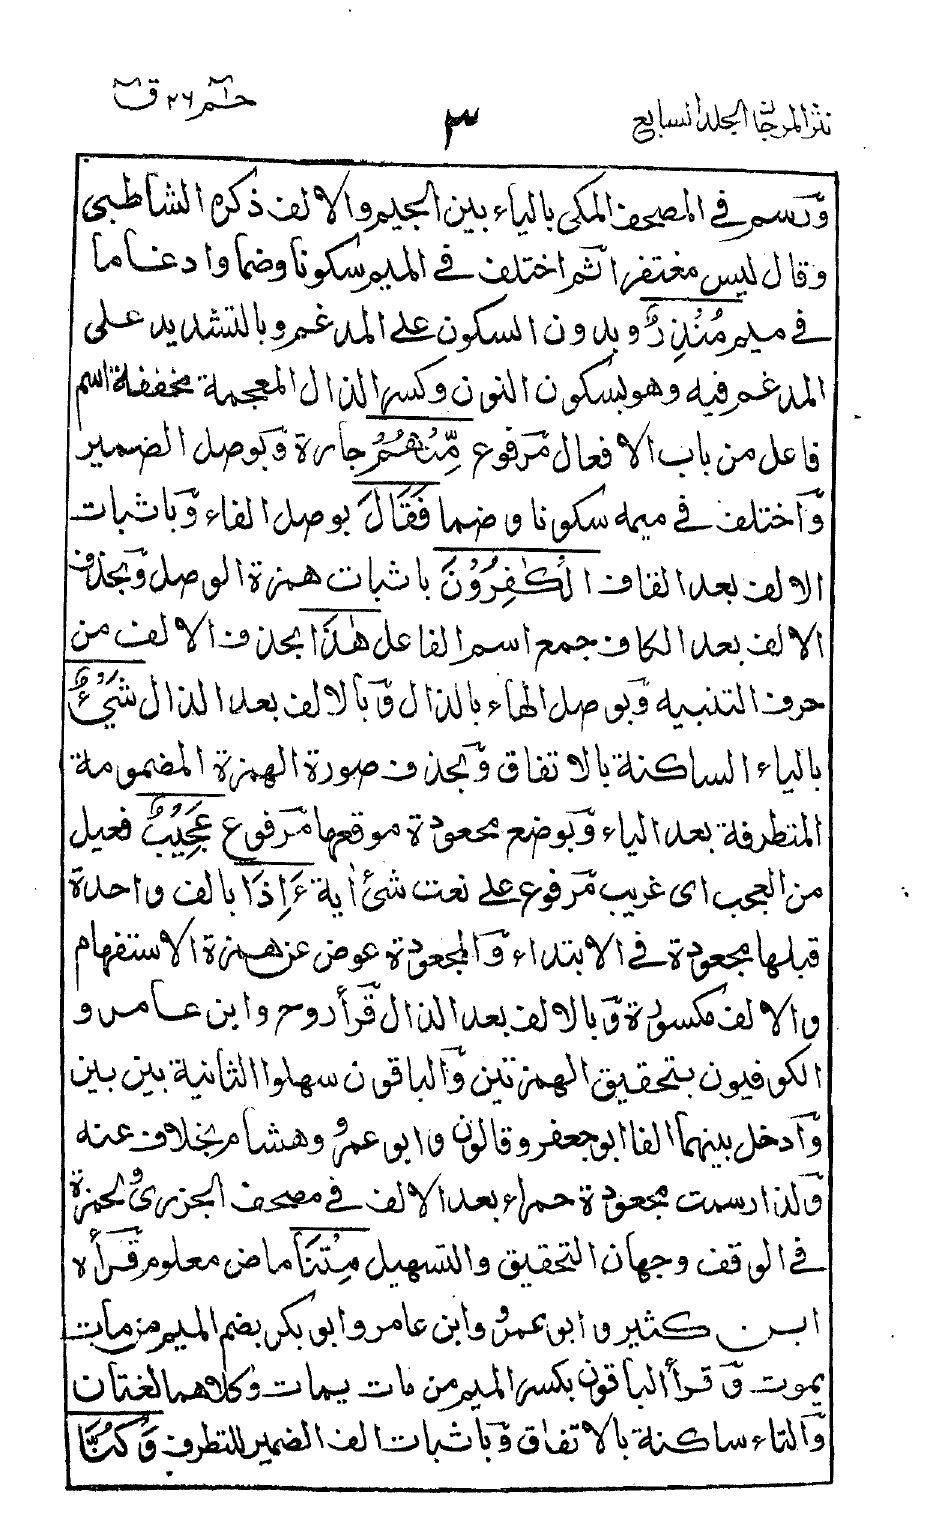 نثر المرجان الجلد السابع ٣ حٰـم ٢٦ ق
ورسم في المصحف المكي بالياء بين الجيم والالف ذكره الشاطبي
وقال ليس مغتفرا ثم اختلف في الميم سكونا وضما وادغاما
في ميم مُنْذِرٌ وبدون السكون على المدغم وبالتشديد على
المدغم فيه وهو بسكون النون وكسر الذال المعجمة مخففة اسم
فاعل من باب الافعال مرفوع مِّنْهُمْ جارة وبوصل الضمير
واختلف في ميمه سكونا وضما فَقَالَ بوصل الفاء وباثبات
الالف بعد القاف الْكٰفِرُوْنَ باثبات همزة الوصل وبحذف
الالف بعد الكاف جمع اسم الفاعل هٰذَا بحذف الالف من
حرف التنبيه وبوصل الهاء بالذال وبالالف بعد الذال شَيْءٌ
بالياء الساكنة بالاتفاق وبحذف صورة الهمزة المضمومة
المتطرفة بعد الياء وبوضع مجعودة موقعها مرفوع عَجِيْبٌ فعيل
من العجب اى غريب مرفوع على نعت شئ أية ءَاِذَا بالف واحدة
قبلها مجعودة في الابتداء والمجعودة عوض عن همزة الاستفهام
والالف مكسورة وبالالف بعد الذال قرأ روح وابن عامر و
الكوفيون بتحقيق الهمزتين والباقون سهلوا الثانية بين بين
وادخل بينهما الفا ابو جعفر وقالون وابو عمرو وهشام بخلاف عنه
ولذا رسمت مجعودة حمراء بعد الالف في مصحف الجزري ولحمزة
في الوقف وجهان التحقيق والتسهيل مِتْنَا ماض معلوم قرأه
ابن كثير وابو عمرو وابن عامر وابو بكر بضم الميم من مات
يموت وقرأ الباقون بكسر الميم من مات يمات وكلاهما لغتان
والتاء ساكنة بالاتفاق وباثبات الف الضمير للتطرف وَكُنَّا